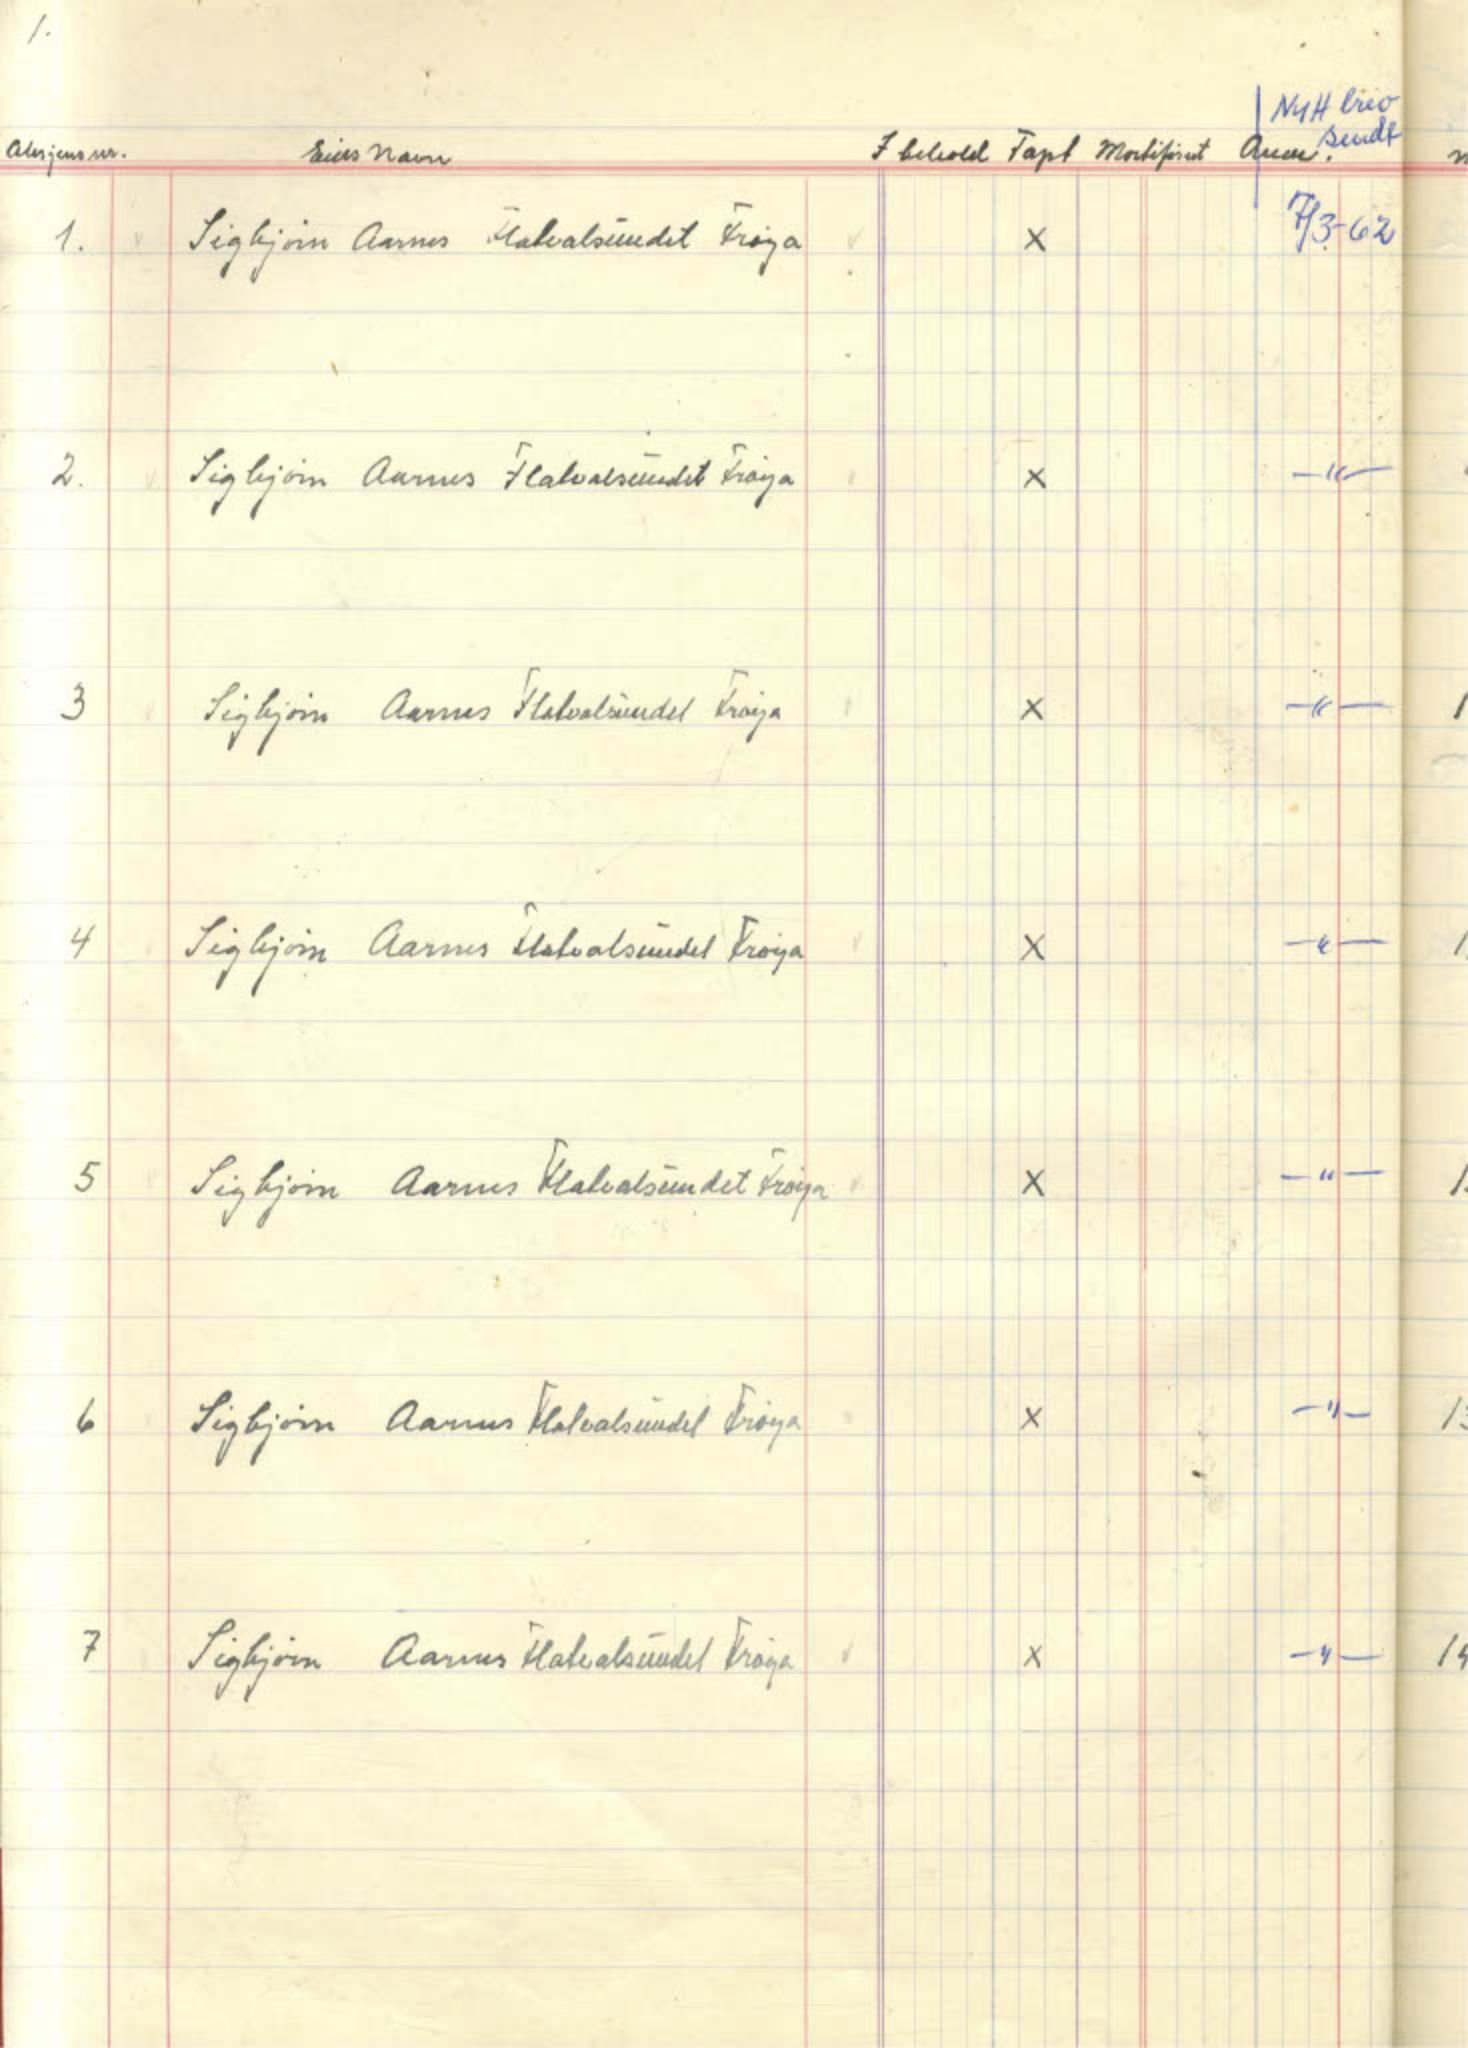 1.
Nytt brev
sendt
Aksjens nr. Eiers Navn I behold Tapt Mortifisert Anm.
1. Sigbjørn Aarnes Flatvalsundet Frøya X 7/3-62
2. Sigbjørn Aarnes Flatvalsundet Frøya X —"—
3 Sigbjørn Aarnes Flatvalsundet Frøya X —"—
4 Sigbjørn Aarnes Flatvalsundet Frøya X —"—
5 Sigbjørn Aarnes Flatvalsundet Frøya X —"—
6 Sigbjørn Aarnes Flatvalsundet Frøya X —"—
7 Sigbjørn Aarnes Flatvalsundet Frøya X —"—